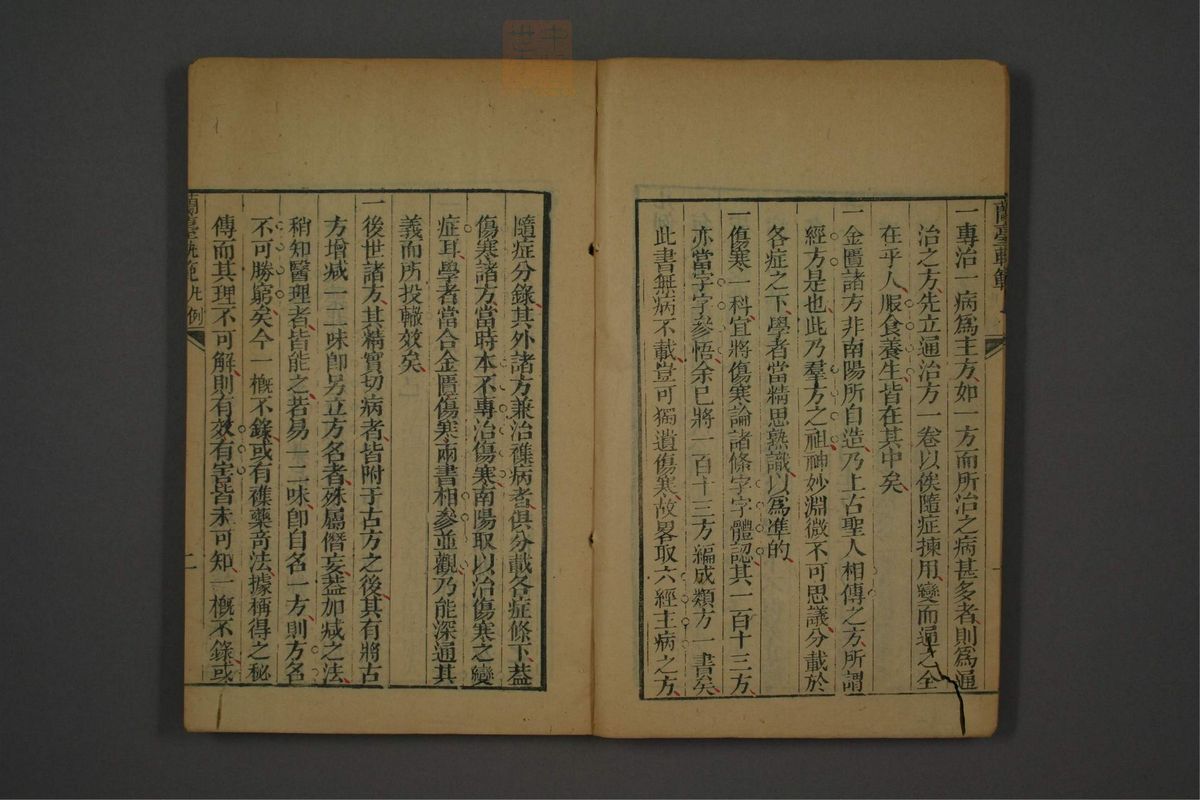 蘭臺軌範
一專治一病爲主方如一方而所治之病甚多者則爲通
治之方先立通治方一卷以俟隨症揀用變而通之全
在乎人服食養生皆在其中矣
一金匱諸方非南陽所自造乃上古聖人相傳之方所謂
經方是也此乃羣方之祖神妙淵微不可思議分載於
各症之下學者當精思熟識以爲准的
一傷寒一科宜將傷寒論諸條字字體認其一百十三方
亦當字字參悟余已將一百十三方編成類方一書矣
此書無病不載豈可獨遺傷寒故畧取六經主病之方
隨症分錄其外諸方兼治襍病者俱分載各症條下葢
傷寒諸方當時本不專治傷寒南陽取以治傷寒之變
症耳學者當合金匱傷寒兩書相參並觀乃能深通其
義而所投輙效矣
一後世諸方其精實切病者皆附于古方之後其有將古
方增减一二味卽另立方名者殊屬僭妄葢加减之法
稍知醫理者皆能之若易一二味卽自名一方則方名
不可勝窮矣今一槪不錄或有襍藥奇法據稱得之秘
傳而其理不可解則有效有害皆未可知一槪不錄或
蘭臺軌範 凡例
二